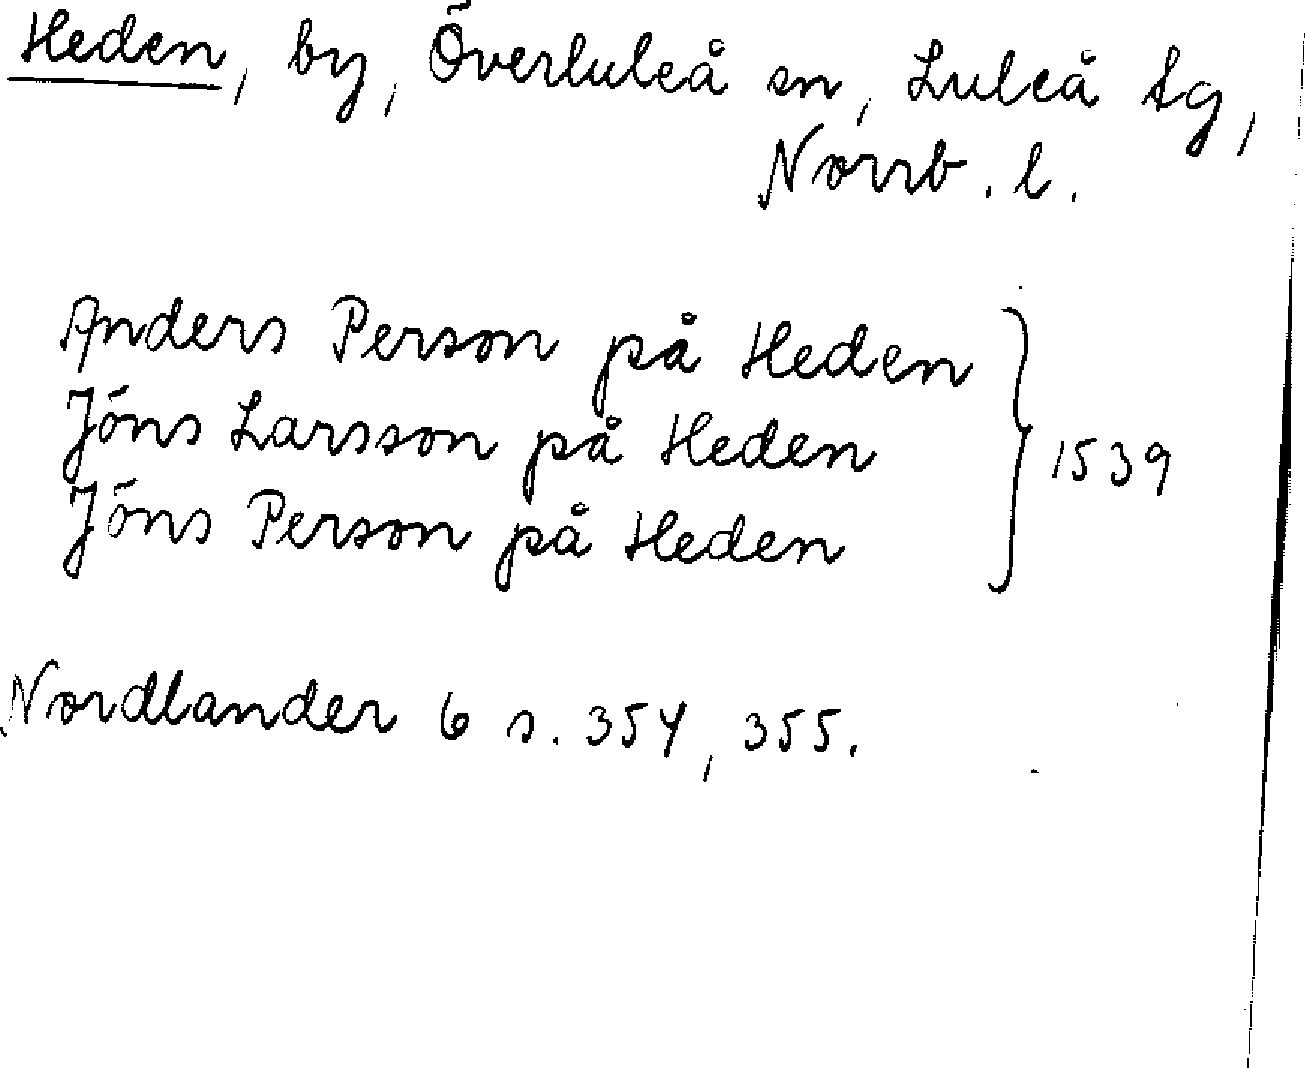 Heden, by, Överluleå sn, Luleå tg,
Norrb. l.
Anders Person på Heden
Jöns Larsson på Heden
Jöns Person på Heden
} 1539
Nordlander 6 s. 354, 355.